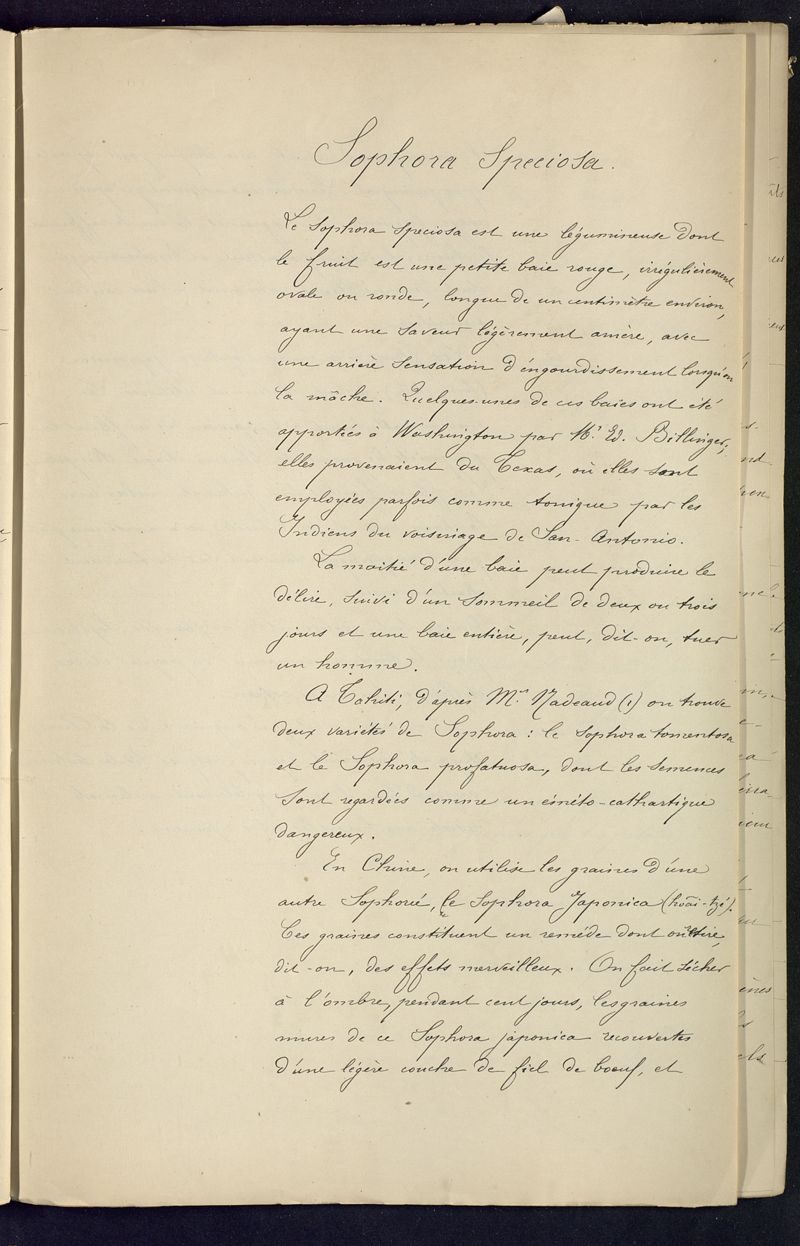 Sophora Speciosa.
Le Sophora speciosa est une légumineuse dont
le fruit est une petite baie rouge, irrégulièrement
ovale ou ronde, longue de un centimètre environ,
ayant une saveur légèrement amère, avec
une arrière sensation d'éngourdissement lorsqu'on
la mâche. Quelques-unes de ces baies ont été
apportées à Washington par Mr. Ed. Billinger;
elles provenaient du Texas, où elles sont
employées parfois comme tonique par les
Indiens du voisinage de San-Antonio.
La moitié d'une baie peut produire le
délire, suivi d'un sommeil de deux ou trois
jours et une baie entière, peut, dit-on, tuer
un homme.
A Tahiti, d'après Mr. Nadeaud (1) on trouve
deux variétés de Sophora : le Sophora tomentosa
et le Sophora profatuosa, dont les semences
sont regardées comme un éméto-cathartique
dangereux.
En Chine, on utilise les graines d'une
autre Sophorée, le Sophora Japonica (hoâi-tzé).
Ces graines constituent un remède dont on tire,
dit-on, des effets merveilleux. On fait sécher
à l'ombre, pendant cent jours, les graines
mures de ce Sophora japonica recouvertes
d'une légère couche de fiel de boeuf, et